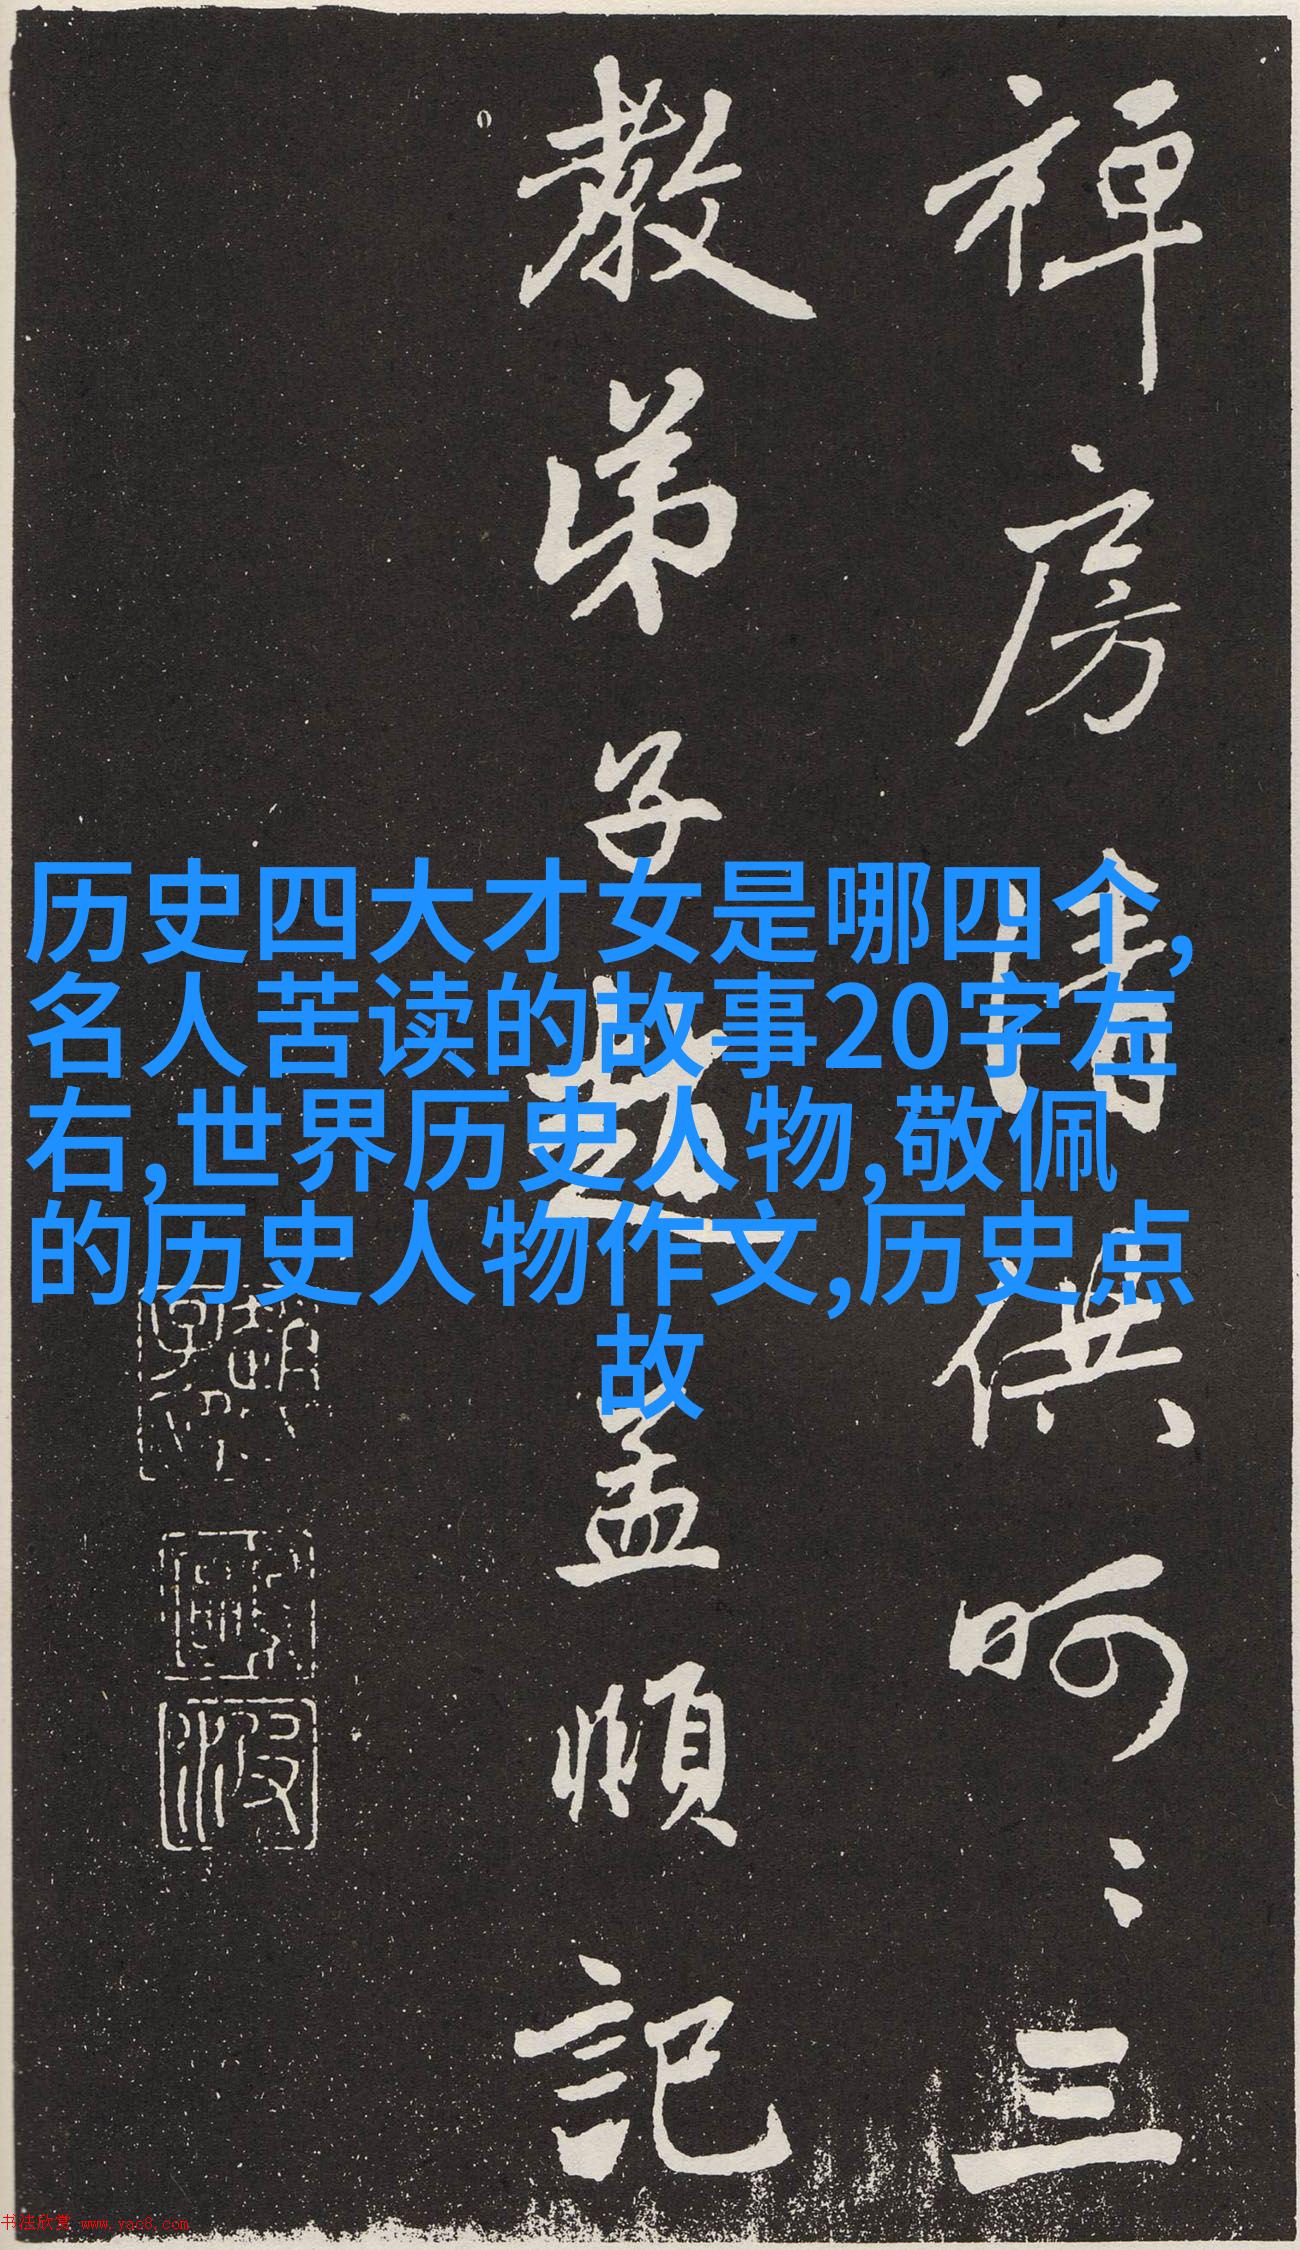 禅房清供呵〻三
教弟子趙孟頫記
历史四大才女是哪四个,
名人苦读的故事20字左
右,世界历史人物,敬佩
的历史人物作文,历史点
故
趙
子
印
书法欣赏 www.yac8.com